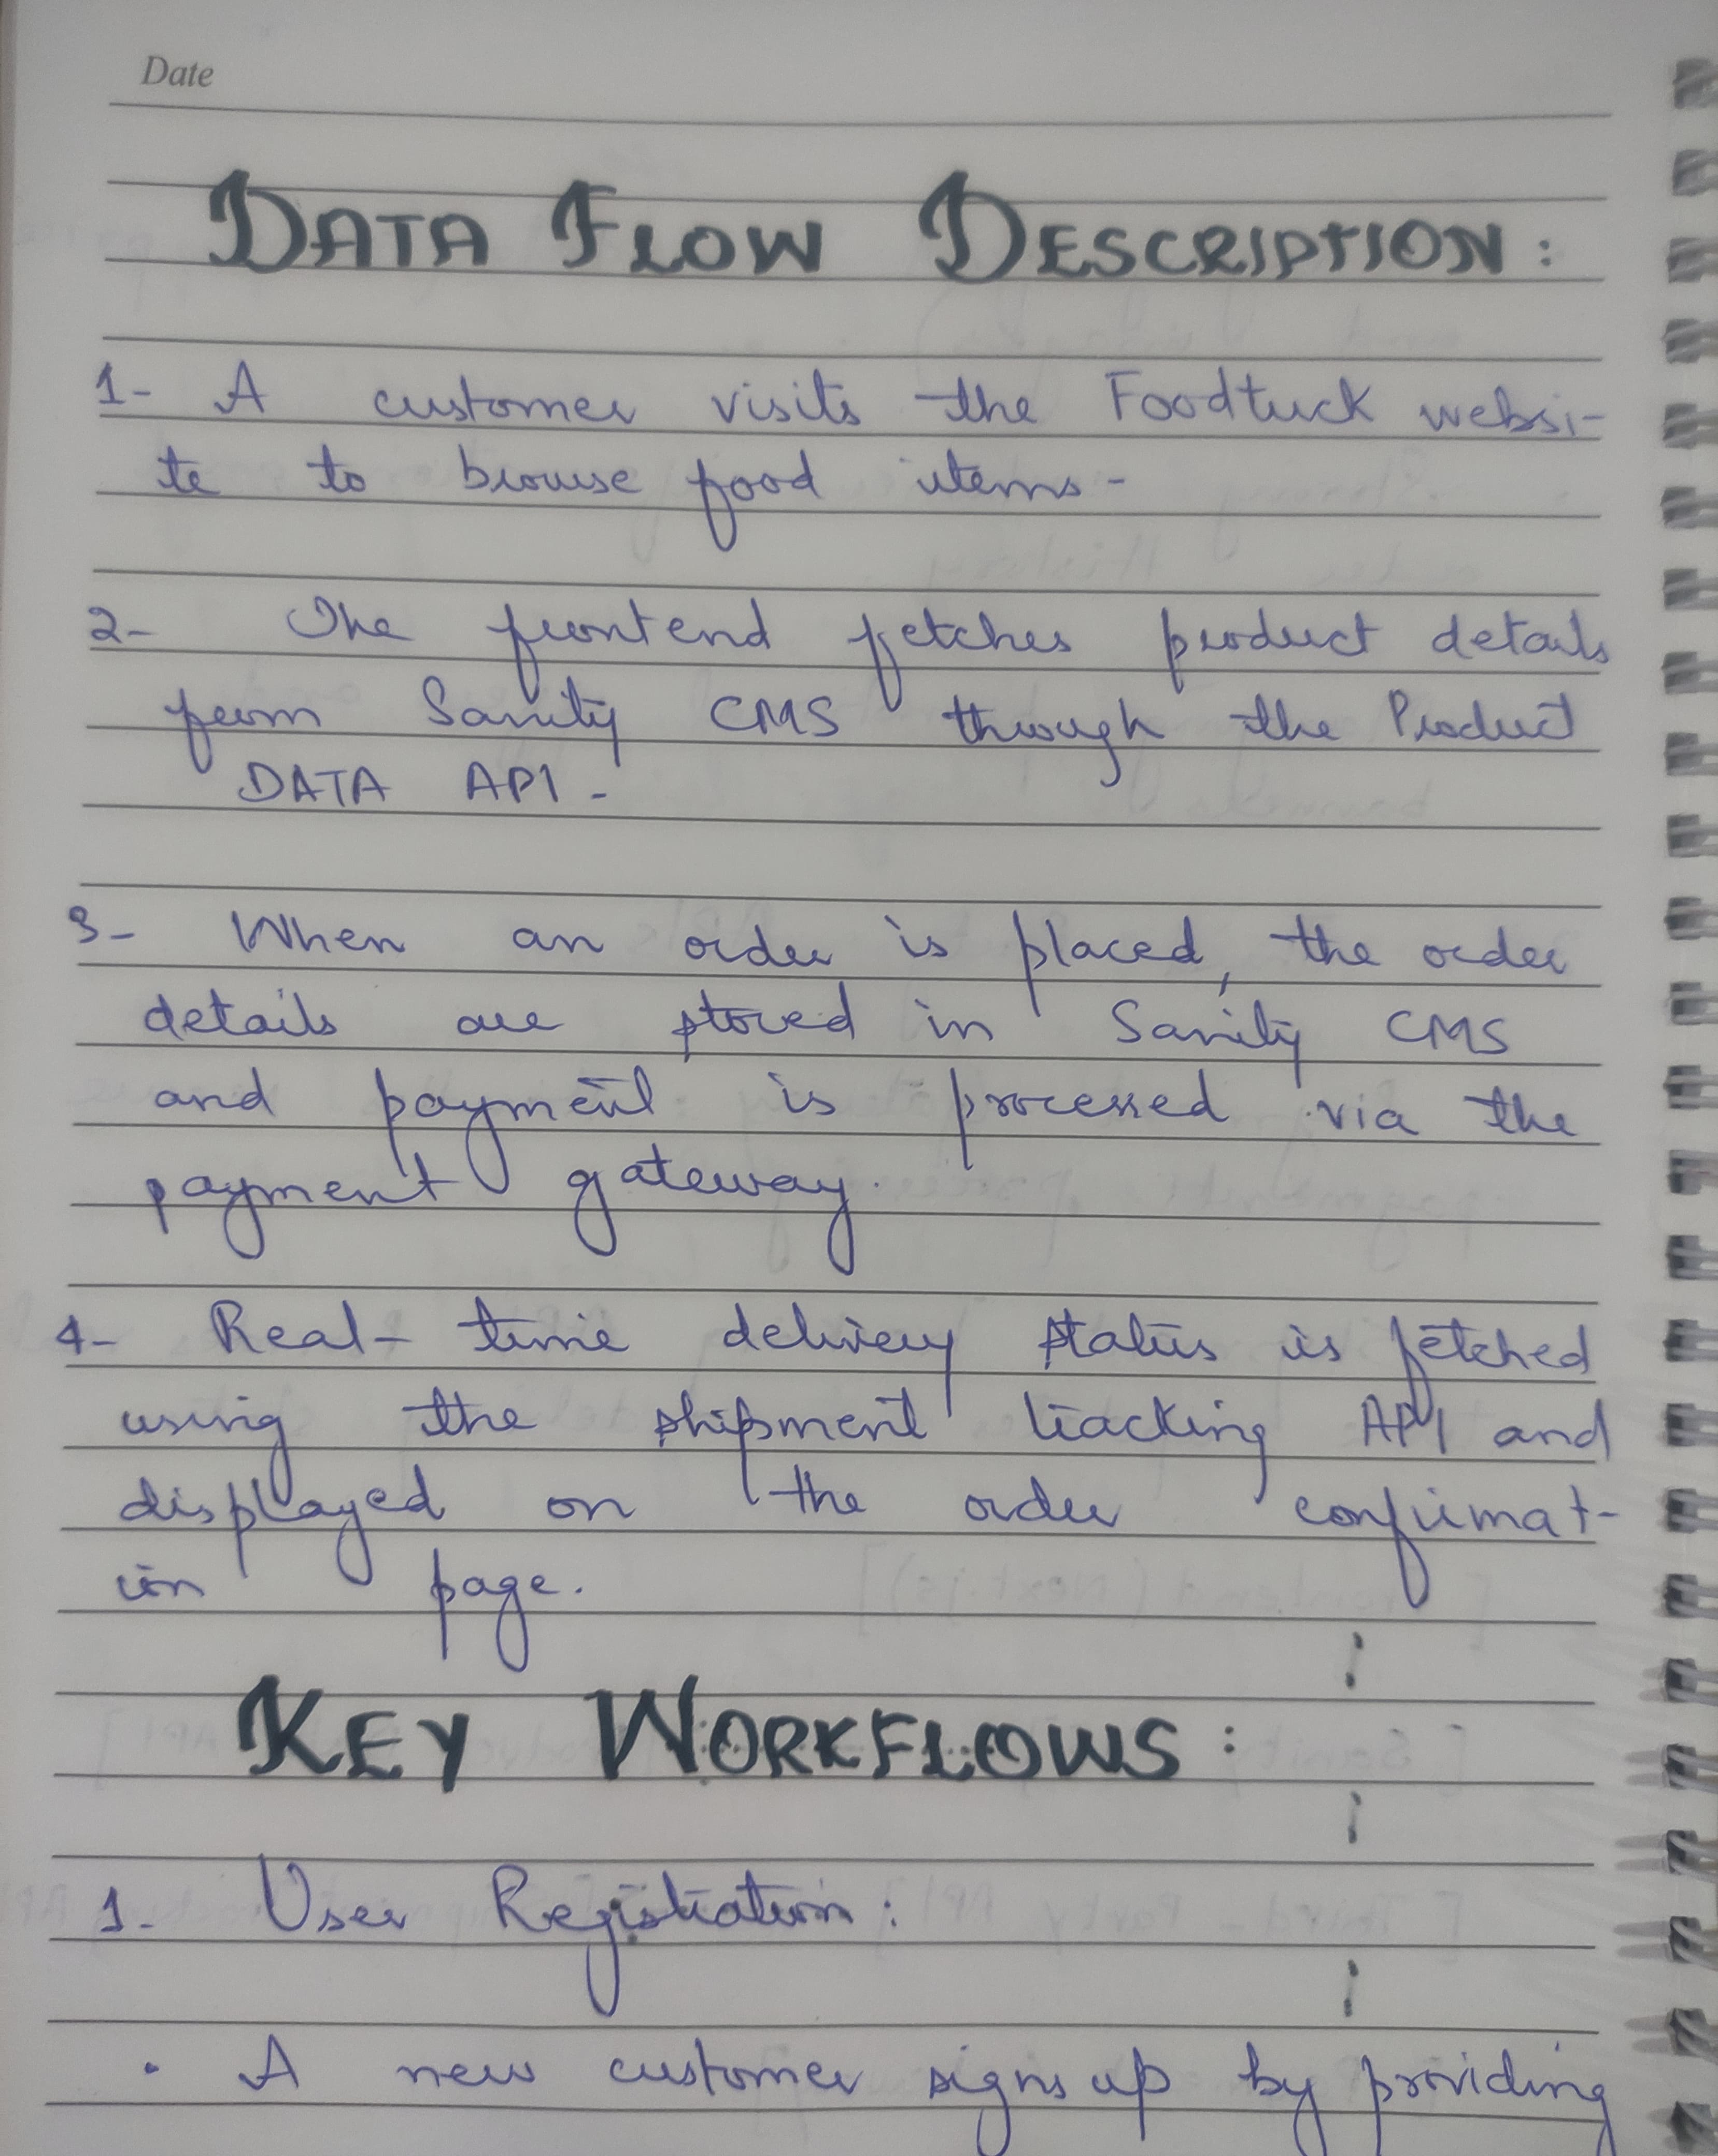 Date
DATA FLOW DESCRIPTION:
1- A customer visits the Foodtuck websi-
te to browse food items-
2- The frontend fetches product details
from Sanity CMS through the Product
DATA API-
3- When an order is placed, the order
details are stored in Sanity CMS
and payment is processed via the
payment gateway.
4- Real-time delivery status is fetched
using the shipment tracking API and
displayed on the order confirmat-
ion page.
KEY WORKFLOWS:
1. User Registration:
• A new customer signs up by providing